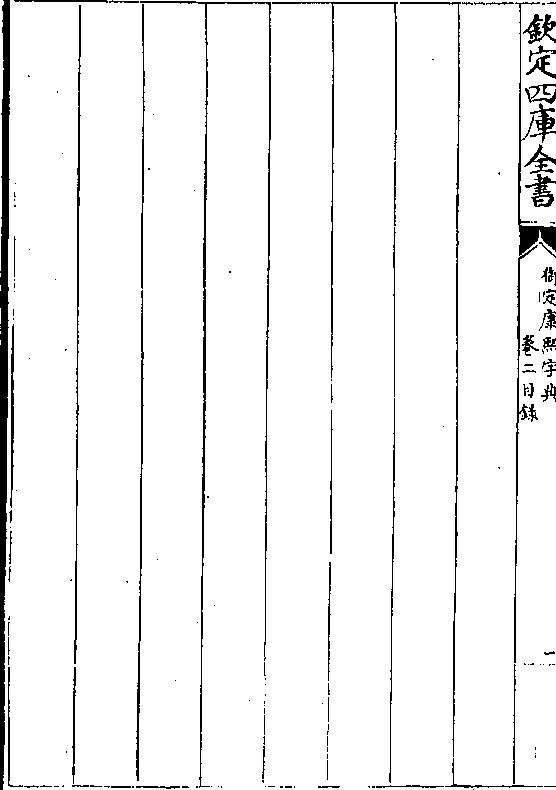 欽定四庫全書
御定康熙字典
卷二目錄
一